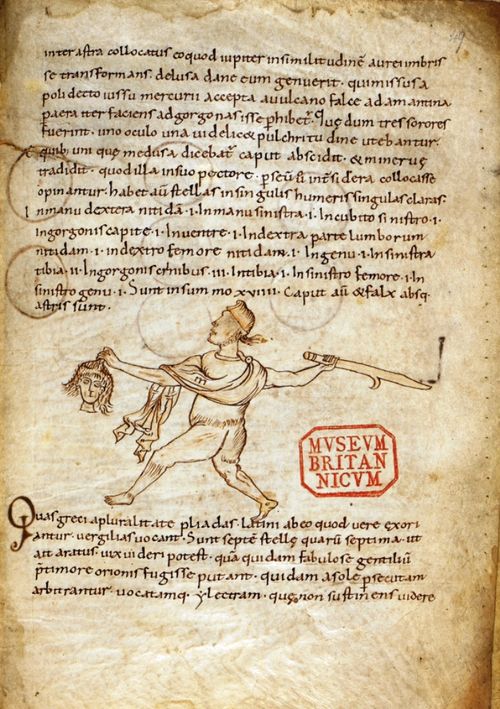 inter astra collocatus eo quod iupiter in similitudinē aurei imbris
se transformans. delusa dane eum genuerit. qui missus a
poli decto iussu mercurii accepta a uulcano falce adamantina
p aera iter faciens ad gorgonas isse phibet͛. Que dum tres sorores
fuerint. uno oculo una uidelic& pulchritudine utebantur.
E quib; uni que medusa dicebat͛ caput abscidit. & minerue
tradidit. quod illa in suo pectore. pseū in sidera collocasse
opinantur. habet aū stellas in singulis humeris singulas claras.
In manu dextera nitidā .i. In manu sinistra .i. In cubito sinistro .i.
in gorgonis capite .i. In uentre .i. In dextra parte lumborum
nitidam .i. in dextro femore nitidam .i. In genu .i. in sinistra
tibia .ii. In gorgonis crinibus .iii. In tibia .i. In sinistro femore .i. In
sinistro genu .i. Sunt in summo xviiii. Caput aū & falx absq
astris sunt.
MVSEVM
BRITAN
NICVM
Quas greci a pluralitate pliadas. latini ab eo quod vere exori
antur. vergilias uocant. Sunt septē stelle quarū septima. ut
ait aratus. uix uideri potest. quā quidam fabulose gentiliū
p timore orionis fugisse putant. quidam a sole psecutam
arbitrantur. uocatamq. ylectram. que non sustinens uidere